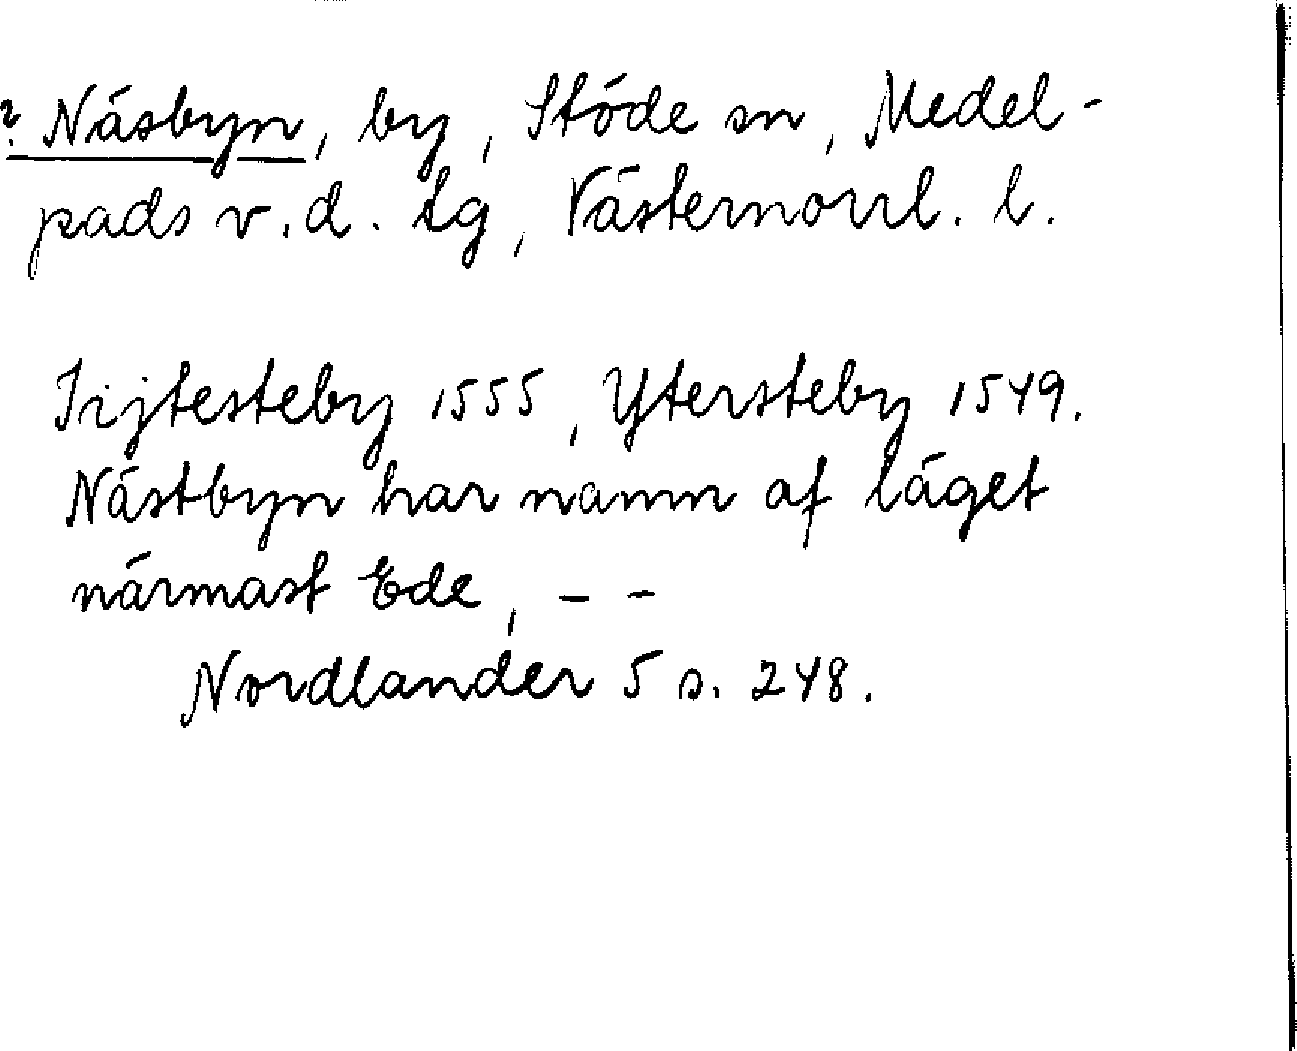 ? Näsbyn, by, Stöde sn, Medel-
pads v.d. tg, Västernorrl. l.
Jijtesteby 1555, Ytersteby 1549.
Nästbyn har namn af läget
närmast Ede, – –
Nordlander 5 s. 248.